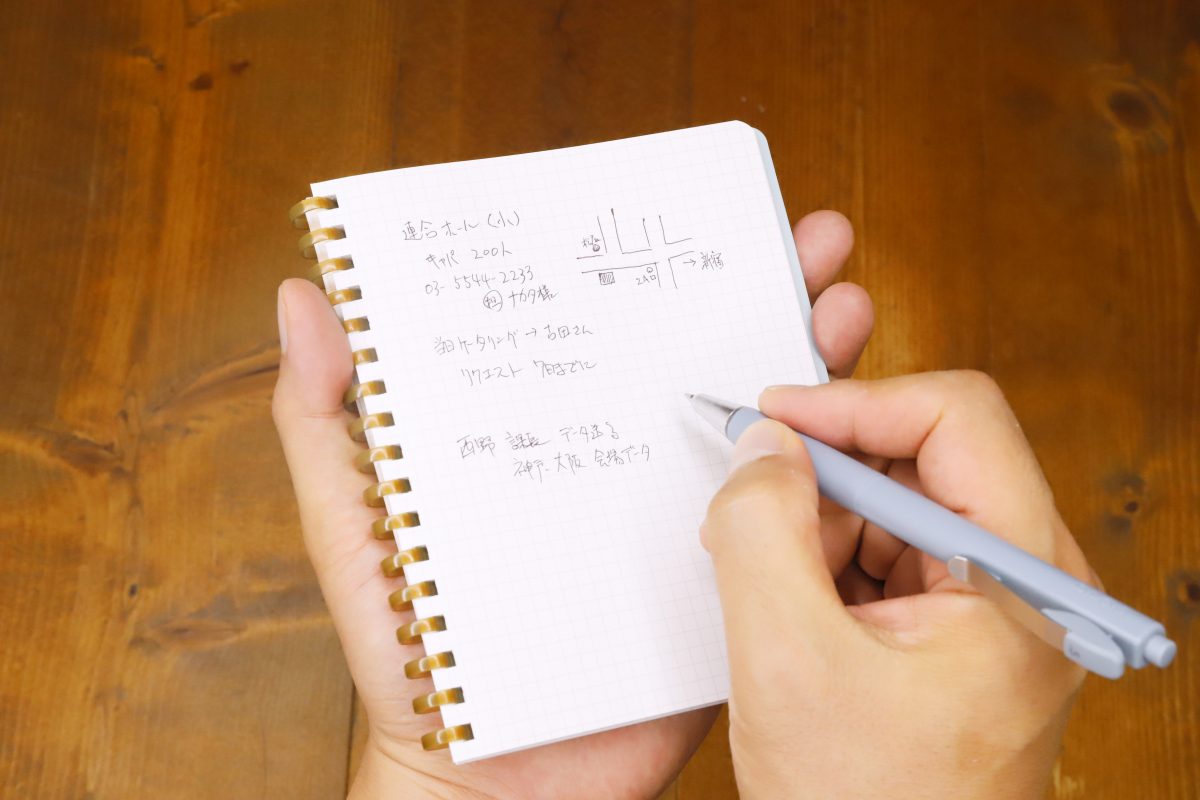 連合ホール(小)
キャパ 200人
03-5544-2233
担 ナカタ様
→新宿
当日ケータリング→吉田さん
リクエスト 7日までに
西野 課長 データ送る
神戸、大阪 会場データ